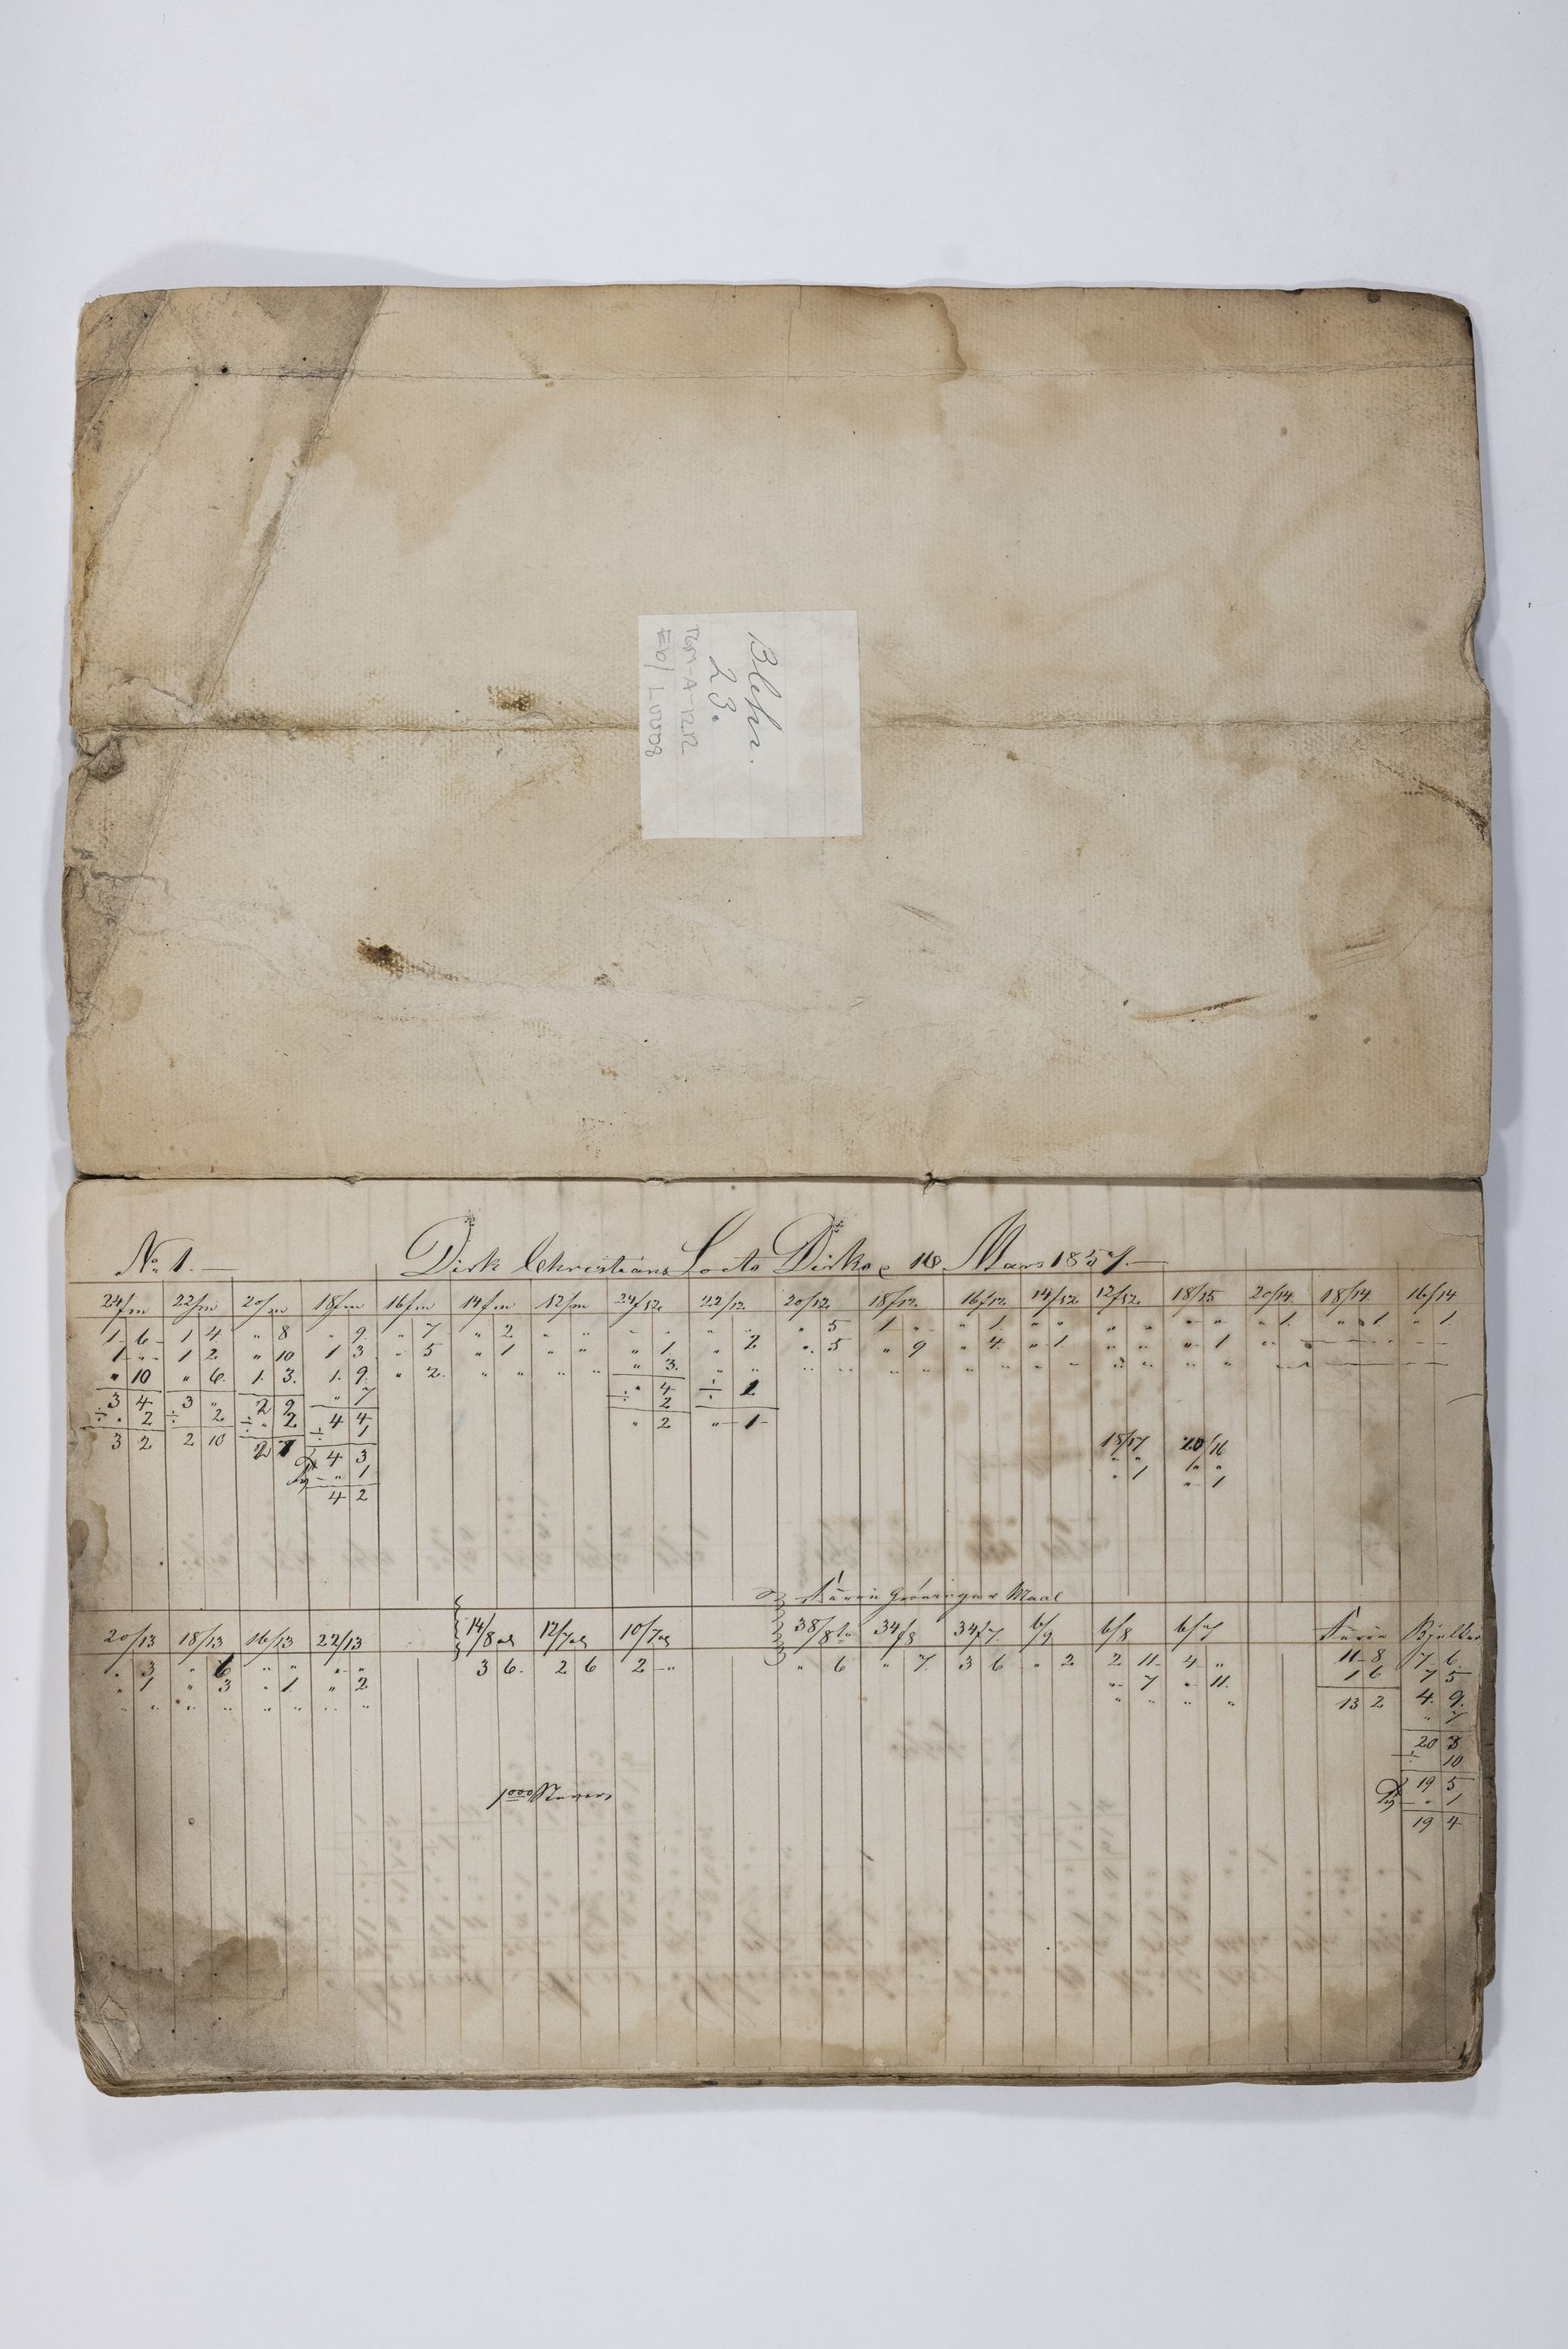 Blehr.
23.
TGM-A-1212
No 1.—
Dirk Christians Locto Dirkse 18 Mars 1857.—
24/m 22/m 20/m 18/m 16/m 14/m 12/m 24/12 22/12 20/12 18/12 16/12 14/12 12/12 18/15 20/14 18/14 16/14
1 6 1 4 " 8 " 9 " 7 " 2 " " " " " " " 5 1 " " 1 " " " " " " " 1 " 1 " 1
1 " 1 2 " 10 1 3 " 5 " 1 " " " 1 " 2 " 5 " 9 " 4 " 1 " " " 1 " "
" 10 " 6 1 3 1 9 " 2 " " " " " 3 " "
3 4 3 " 2 9 " 7 " 4 ÷ 1
÷ " 2 ÷ 2 ÷ " 2 4 4 ÷ 2
3 2 2 10 2 7 ÷ 1 " 2 " 1
4 3 18/17 20/16
" 1 " " " "
4 2 " 1 " 1
Groninger Maal
20/13 18/13 16/13 22/13 14/8 12/7 10/7 38/8 34/8 34/7 6/9 6/8 6/7 Bjelker
" 3 " 6 " " " " 3 6 2 6 2 " " 6 " 7 3 6 " 2 2 11 4 " 11 8 7 6
" 1 " 3 " 1 " 2 " 7 " 11 1 6 7 5
" " " " " " " " " " " " 13 2 4 9
" 7
20 3
÷ 10
19 5
" 1
19 4
1000